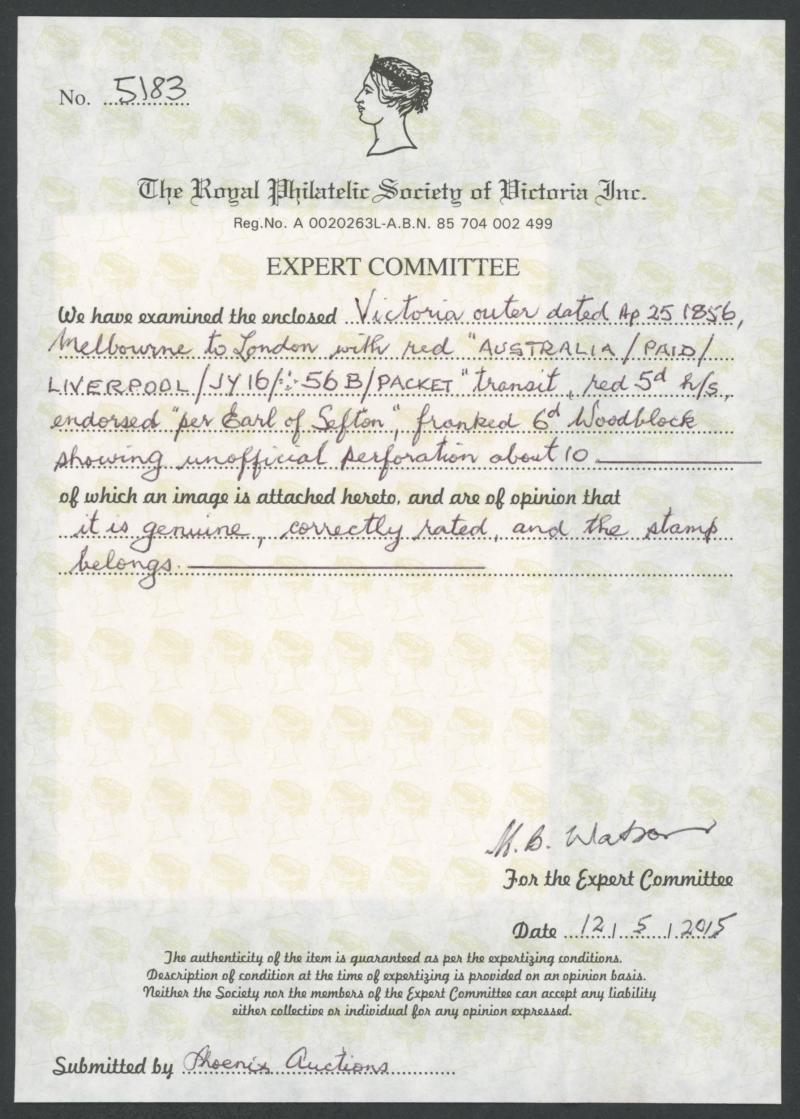 No. 5183
The Royal Philatelic Society of Victoria Inc.
Reg.No. A 0020263L-A.B.N. 85 704 002 499
EXPERT COMMITTEE
We have examined the enclosed Victoria outer dated Ap 25 1856,
Melbourne to London with red "AUSTRALIA/PAID/
LIVERPOOL/JY16/:·:56B/PACKET" transit, red 5d h/s,
endorsed "per Earl of Sefton", franked 6d Woodblock
showing unofficial perforation about 10
of which an image is attached hereto, and are of opinion that
it is genuine, correctly rated, and the stamp
belongs.
M. B. Watson
For the Expert Committee
Date 12 / 5 / 2015
The authenticity of the item is guaranteed as per the expertizing conditions.
Description of condition at the time of expertizing is provided on an opinion basis.
Neither the Society nor the members of the Expert Committee can accept any liability
either collective or individual for any opinion expressed.
Submitted by Phoenix Auctions